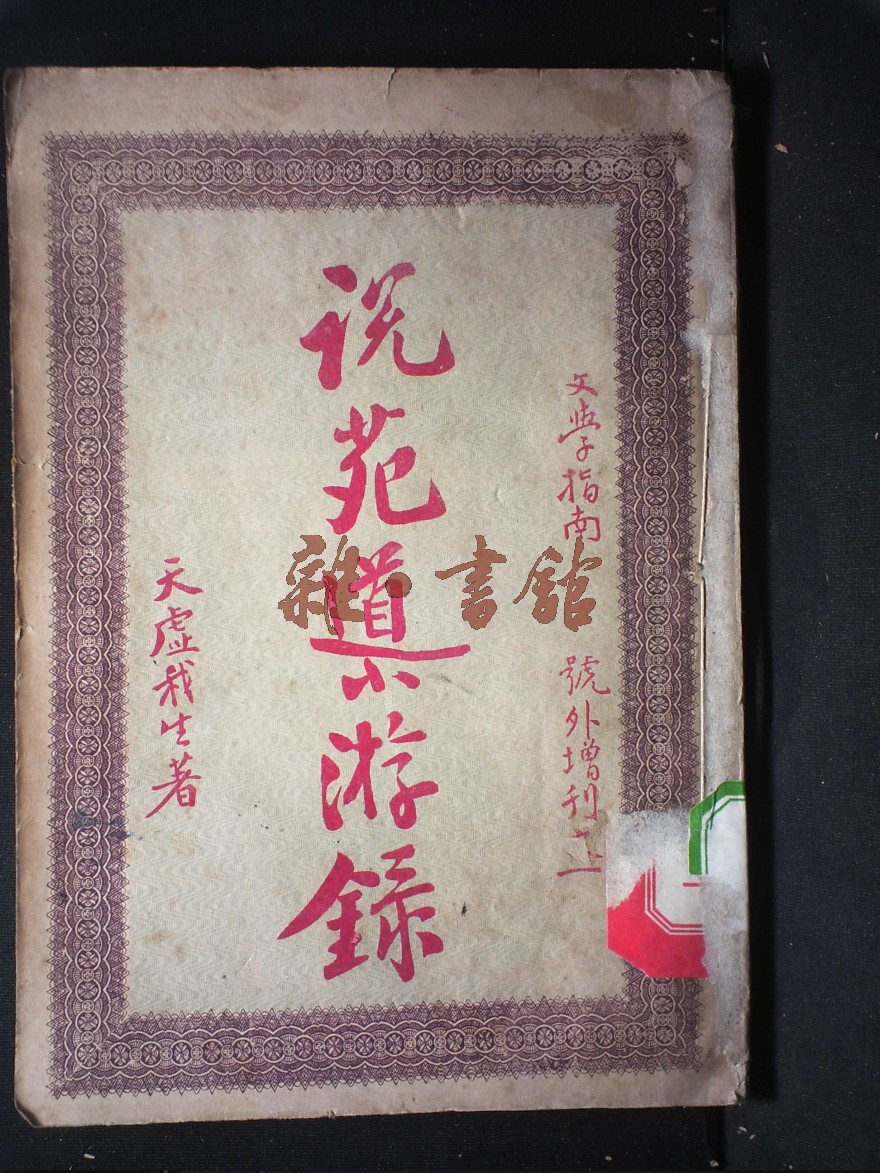 文學指南 號外增刊之一
説苑導游錄
天虛我生著
雜·書館